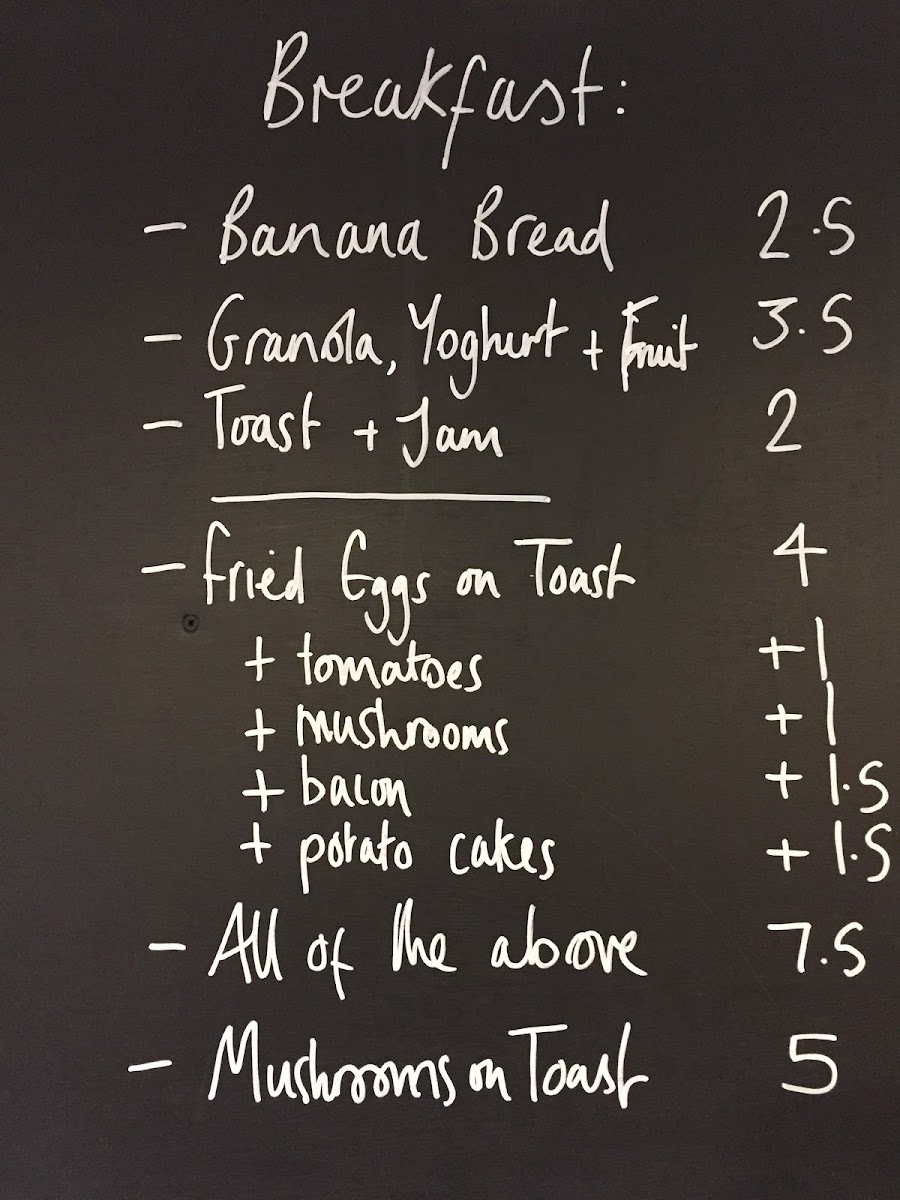 Breakfast:
- Banana Bread 2.5
- Granola, Yoghurt + Fruit 3.5
- Toast + Jam 2
- Fried Eggs on Toast 4
+ tomatoes +1
+ mushrooms +1
+ bacon +1.5
+ potato cakes +1.5
- All of the above 7.5
- Mushrooms on Toast 5